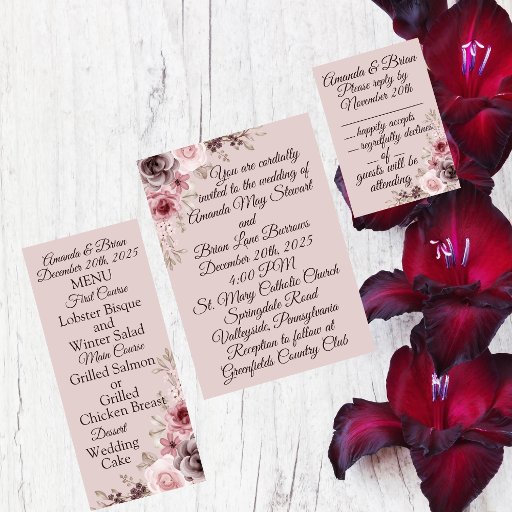 Amanda & Brian
December 20th, 2025
MENU
First Course
Lobster Bisque
and
Winter Salad
Main Course
Grilled Salmon
or
Grilled
Chicken Breast
Dessert
Wedding
Cake
You are cordially
invited to the wedding of
Amanda May Stewart
and
Brian Lane Burrows
December 20th, 2025
4:00 PM
St. Mary Catholic Church
Springdale Road
Valleyside, Pennsylvania
Reception to follow at
Greenfields Country Club
Amanda & Brian
Please reply by
November 20th
happily accepts
regretfully declines
of
guests will be
attending